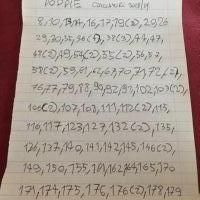 DOPPIE
8, 10, 16, 17, 19(2), 25, 26
29, 30, 35, 36, 38(2), 44, 47
48(2), 49, 54(2), 55(2), 56, 57
58(2), 59, 61, 62, 63, 70, 71, 72
76, 77, 79, 88, 90, 92, 93, 102, 103(2)
106(2), 107, 108, 111, 112(2), 115,
116, 117, 123, 127, 132(2), 135,
136, 137, 140, 141, 142, 145, 146(2),
149, 150, 155, 161, 162, 164, 165, 170
171, 174, 175, 176, 176(2), 178, 179